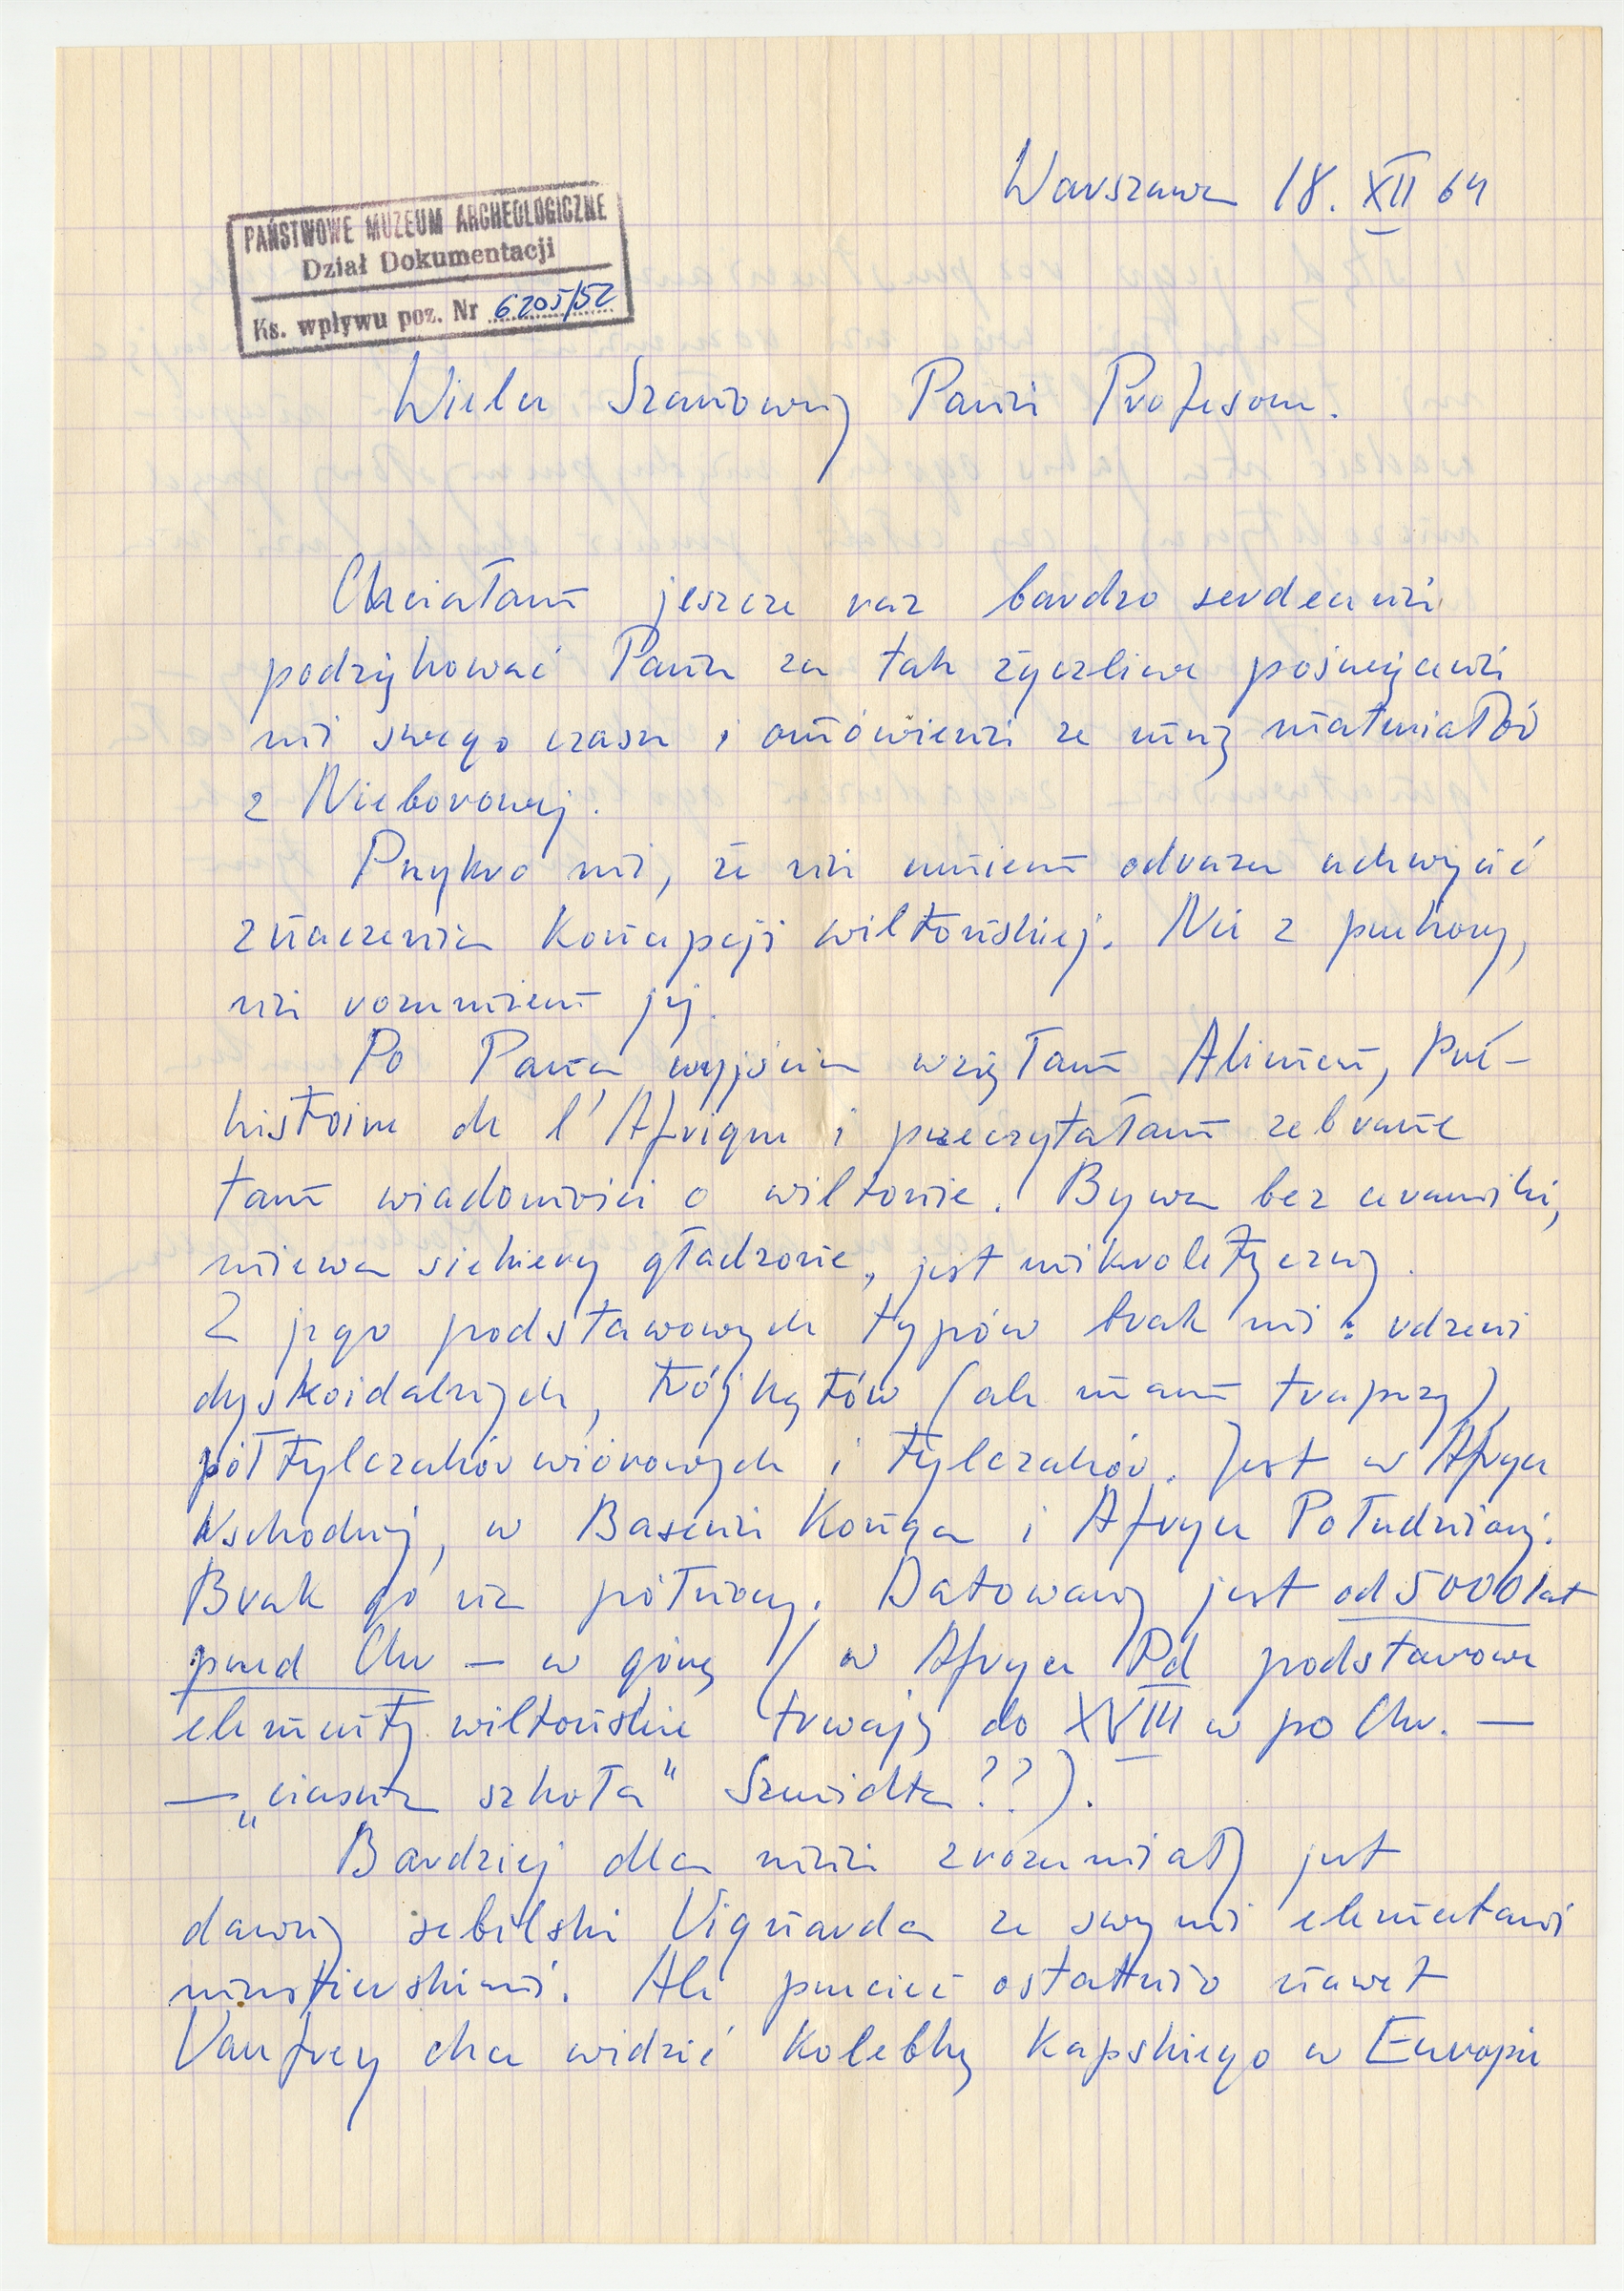 Warszawa 18. XII 64
PAŃSTWOWE MUZEUM ARCHEOLOGICZNE
Dział Dokumentacji
Ks. wpływu poz. Nr 6205/52
Wielce Szanowny Panie Profesorze.
Chciałam jeszcze raz bardzo serdecznie
podziękować Panu za tak życzliwe poświęcenie
mi swego czasu i omówienie ze mną materiałów
z Nieborowej.
Przykro mi, że nie umiem odrazu uchwycić
znaczenia koncepcji wiltońskiej. Nie z przekory,
nie rozumiem jej.
Po Pana wyjściu wzięłam Alimen, Pré-
histoire de l'Afrique i przeczytałam zebrane
tam wiadomości o wiltonie. Bywa bez ceramiki,
miewa siekiery gładzone, jest mikrolityczny.
Z jego podstawowych typów brak mi: rdzeni
dyskoidalnych, trójkątów (ale mam trapezy),
półtylczaków wiórowych i tylczaków. Jest w Afryce
Wschodniej, w Basenie Konga i Afryce Południowej.
Brak go na północy. Datowany jest od 5000 lat
przed Chr – w górę (w Afryce Pd podstawowe
elementy wiltońskie trwają do XVIII w po Chr. —
— „ciasna szkoła" Szmidta??).
Bardziej dla mnie zrozumiały jest
dawny sebilski Vignarda ze swymi elementami
mustierskimi. Ale przecież ostatnio nawet
Vaufrey chce widzieć kolebkę kapskiego w Europie